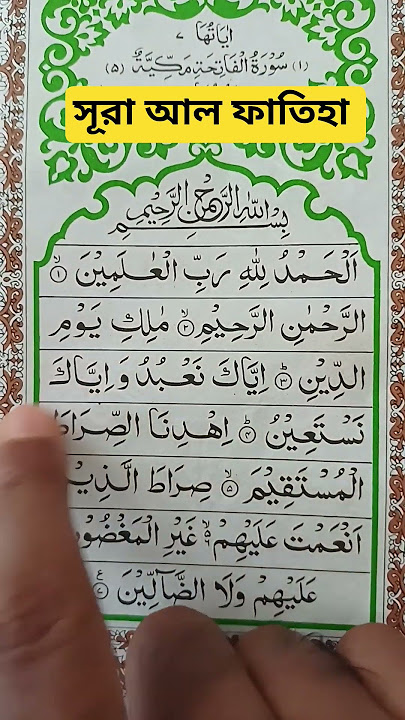 اٰيَاتُهَا ٧
(١) سُوْرَةُ الْفَاتِحَةِ مَكِّيَّةٌ (٥)
সূরা আল ফাতিহা
بِسْمِ اللّٰهِ الرَّحْمٰنِ الرَّحِيْمِ
اَلْحَمْدُ لِلّٰهِ رَبِّ الْعٰلَمِيْنَ ۙ﴿١﴾
الرَّحْمٰنِ الرَّحِيْمِ ۙ﴿٢﴾ مٰلِكِ يَوْمِ
الدِّيْنِ ؕ﴿٣﴾ اِيَّاكَ نَعْبُدُ وَ اِيَّاكَ
نَسْتَعِيْنُ ؕ﴿٤﴾ اِهْدِنَا الصِّرَاطَ
الْمُسْتَقِيْمَ ۙ﴿٥﴾ صِرَاطَ
اَنْعَمْتَ عَلَيْهِمْ ۙ﴿٦﴾ غَيْرِ
عَلَيْهِمْ وَلَا الضَّآلِّيْنَ ﴿٧﴾